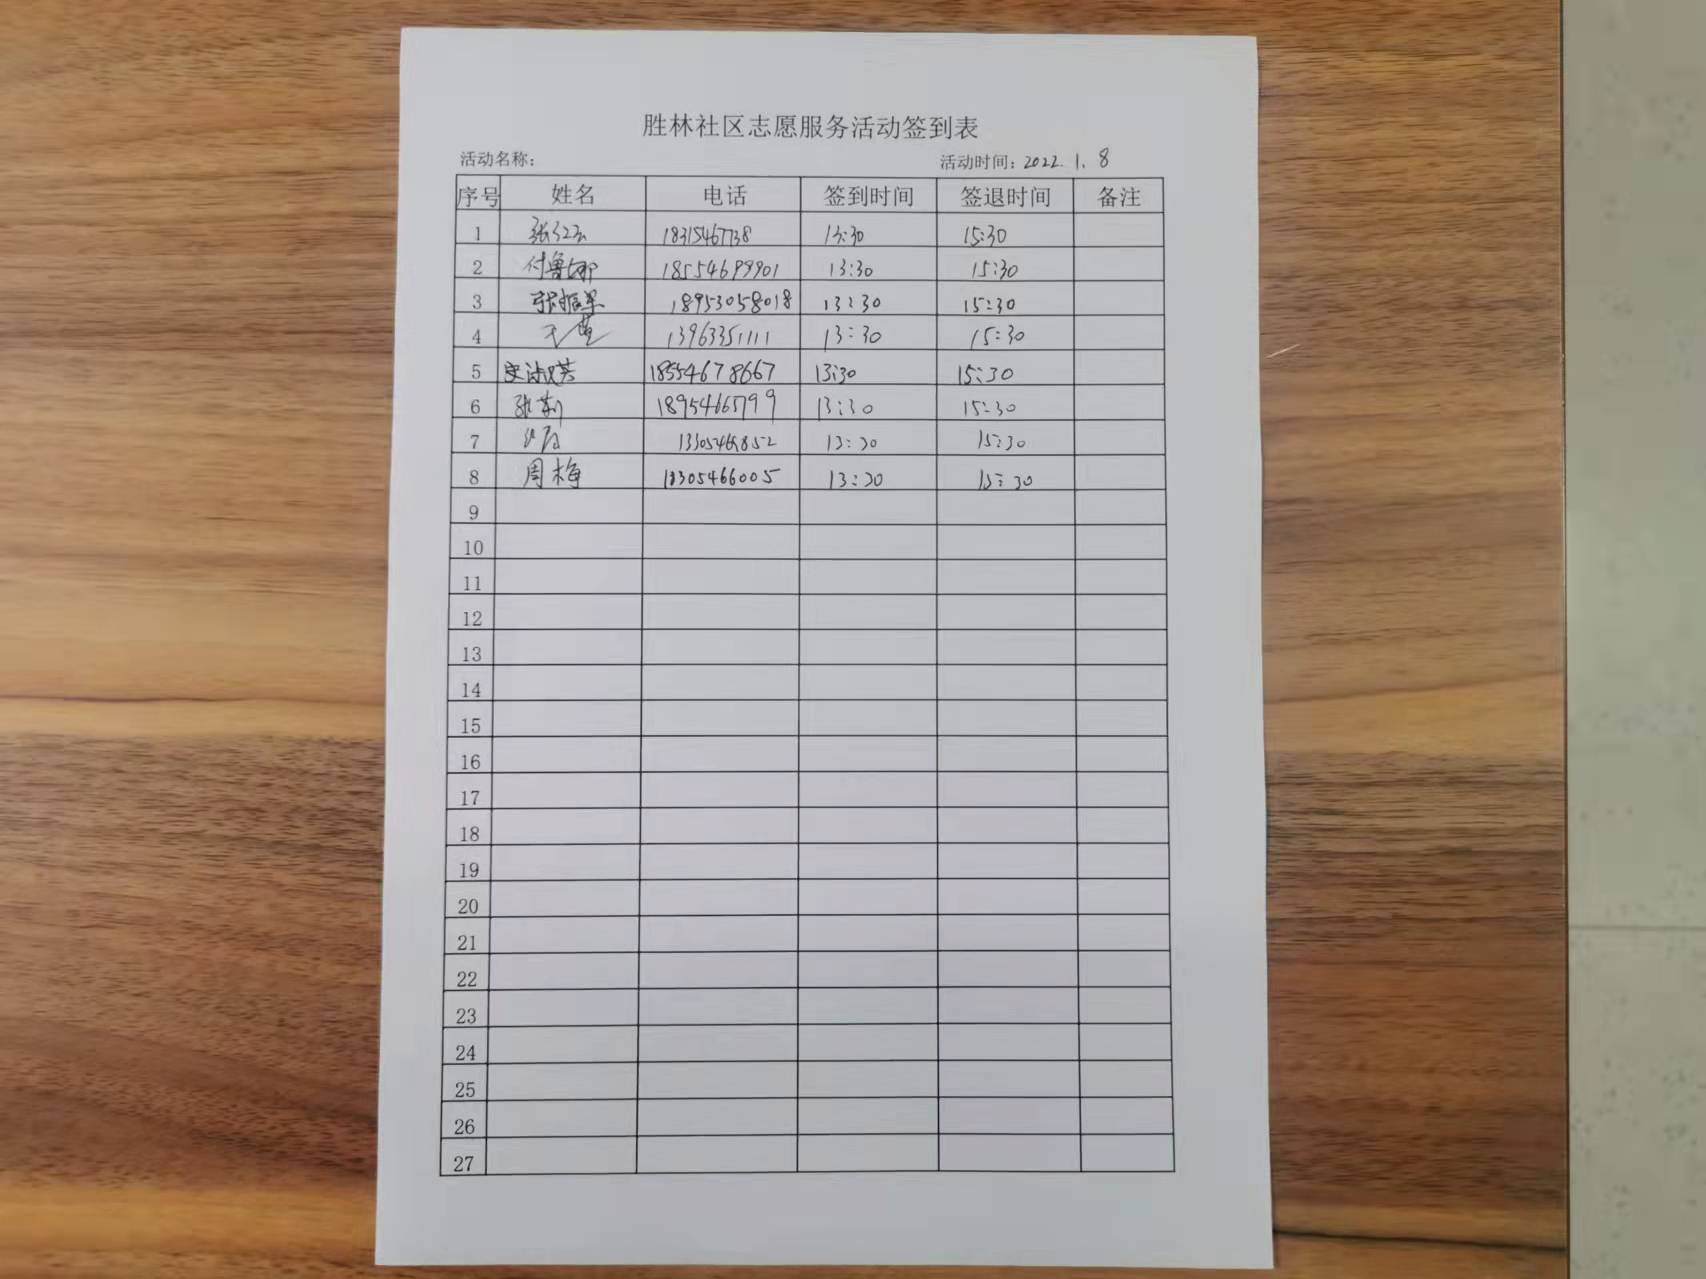 胜林社区志愿服务活动签到表
活动名称： 活动时间：2022.1.8
序号 姓名 电话 签到时间 签退时间 备注
1 张红云 18315467738 13:30 15:30
2 付鲁娜 18554699901 13:30 15:30
3 18953058018 13:30 15:30
4 13963351111 13:30 15:30
5 18554678667 13:30 15:30
6 张莉 18954665799 13:30 15:30
7 13:30 15:30
8 周梅 18305466005 13:30 15:30
9
10
11
12
13
14
15
16
17
18
19
20
21
22
23
24
25
26
27